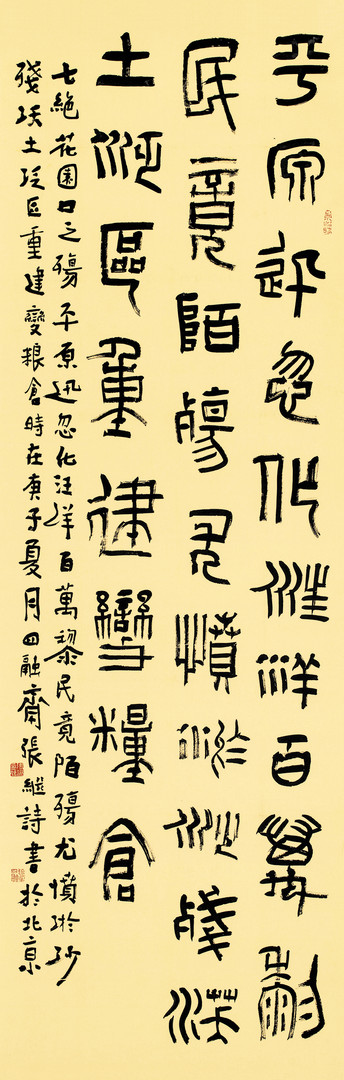 平原迅忽化汪洋百萬黎
民竟陌殤尤憤淤沙殘沃
土泛區重建變糧倉
七絕花園口之殤平原迅忽化汪洋百萬黎民竟陌殤尤憤淤沙
殘沃土泛區重建變粮倉時在庚子夏月四融齋張繼詩書於北京